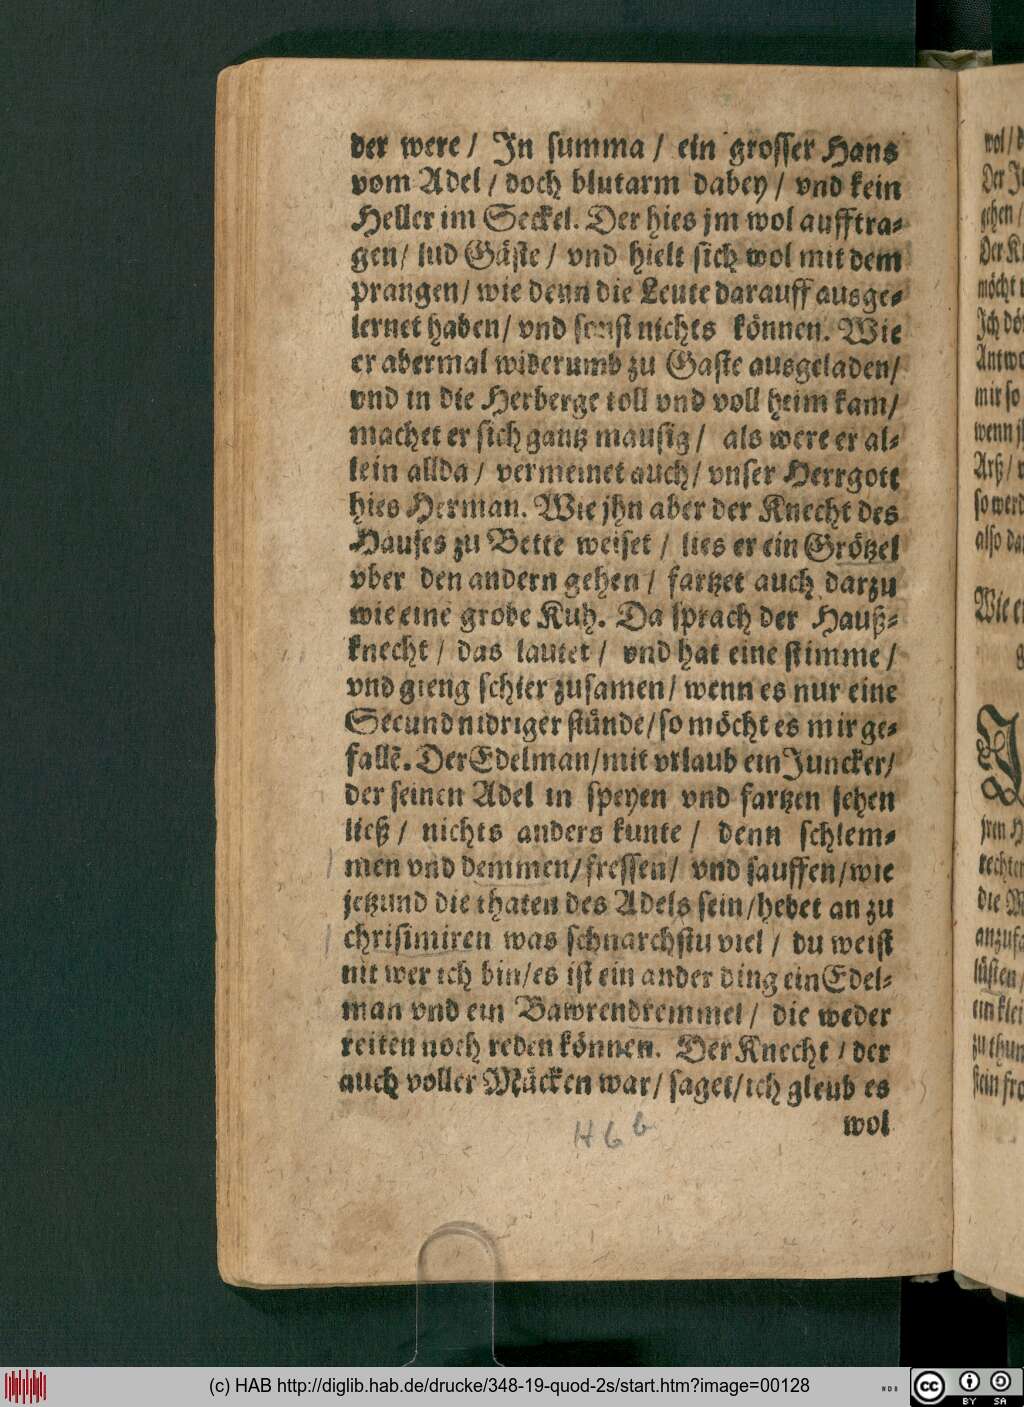 der were / In summa / ein grosser Hans
vom Adel / doch blutarm dabey / vnd kein
Heller im Seckel. Der hies jm wol aufftra⸗
gen / lud Gäste / vnd hielt sich wol mit dem
prangen / wie denn die Leute darauff ausge⸗
lernet haben / vnd sonst nichts können. Wie
er abermal widerumb zu Gaste ausgeladen /
vnd in die Herberge toll vnd voll heim kam /
machet er sich gantz mausig / als were er al⸗
lein allda / vermeinet auch / vnser Herrgott
hies Herman. Wie jhn aber der Knecht des
Hauses zu Bette weiset / lies er ein Grötzel
vber den andern gehen / fartzet auch darzu
wie eine grobe Kuh. Da sprach der Hauß⸗
knecht / das lautet / vnd hat eine stimme /
vnd gieng schier zusamen / wenn es nur eine
Secund nidriger stünde / so möcht es mir ge⸗
fallē. Der Edelman / mit vrlaub ein Juncker /
der seinen Adel in speyen vnd fartzen sehen
ließ / nichts anders kunte / denn schlem⸗
men vnd demmen / fressen / vnd sauffen / wie
jetzund die thaten des Adels sein / hebet an zu
chrisimiren was schnarchstu viel / du weist
nit wer ich bin / es ist ein ander ding ein Edel⸗
man vnd ein Bawrendremmel / die weder
reiten noch reden können. Der Knecht / der
auch voller Mücken war / saget / ich gleub es
wol
H 6 b
wol / d
Der Ju
gehen /
Der Kn
möcht
Ich dö
Antwo
mir so
wenn j
Arß /
so werd
also da
Wie ei
g
J
jren H
rechten
die M
anzufa
lüsten /
ein klei
zu thun
sein fro
(c) HAB http://diglib.hab.de/drucke/348-19-quod-2s/start.htm?image=00128
cc BY SA